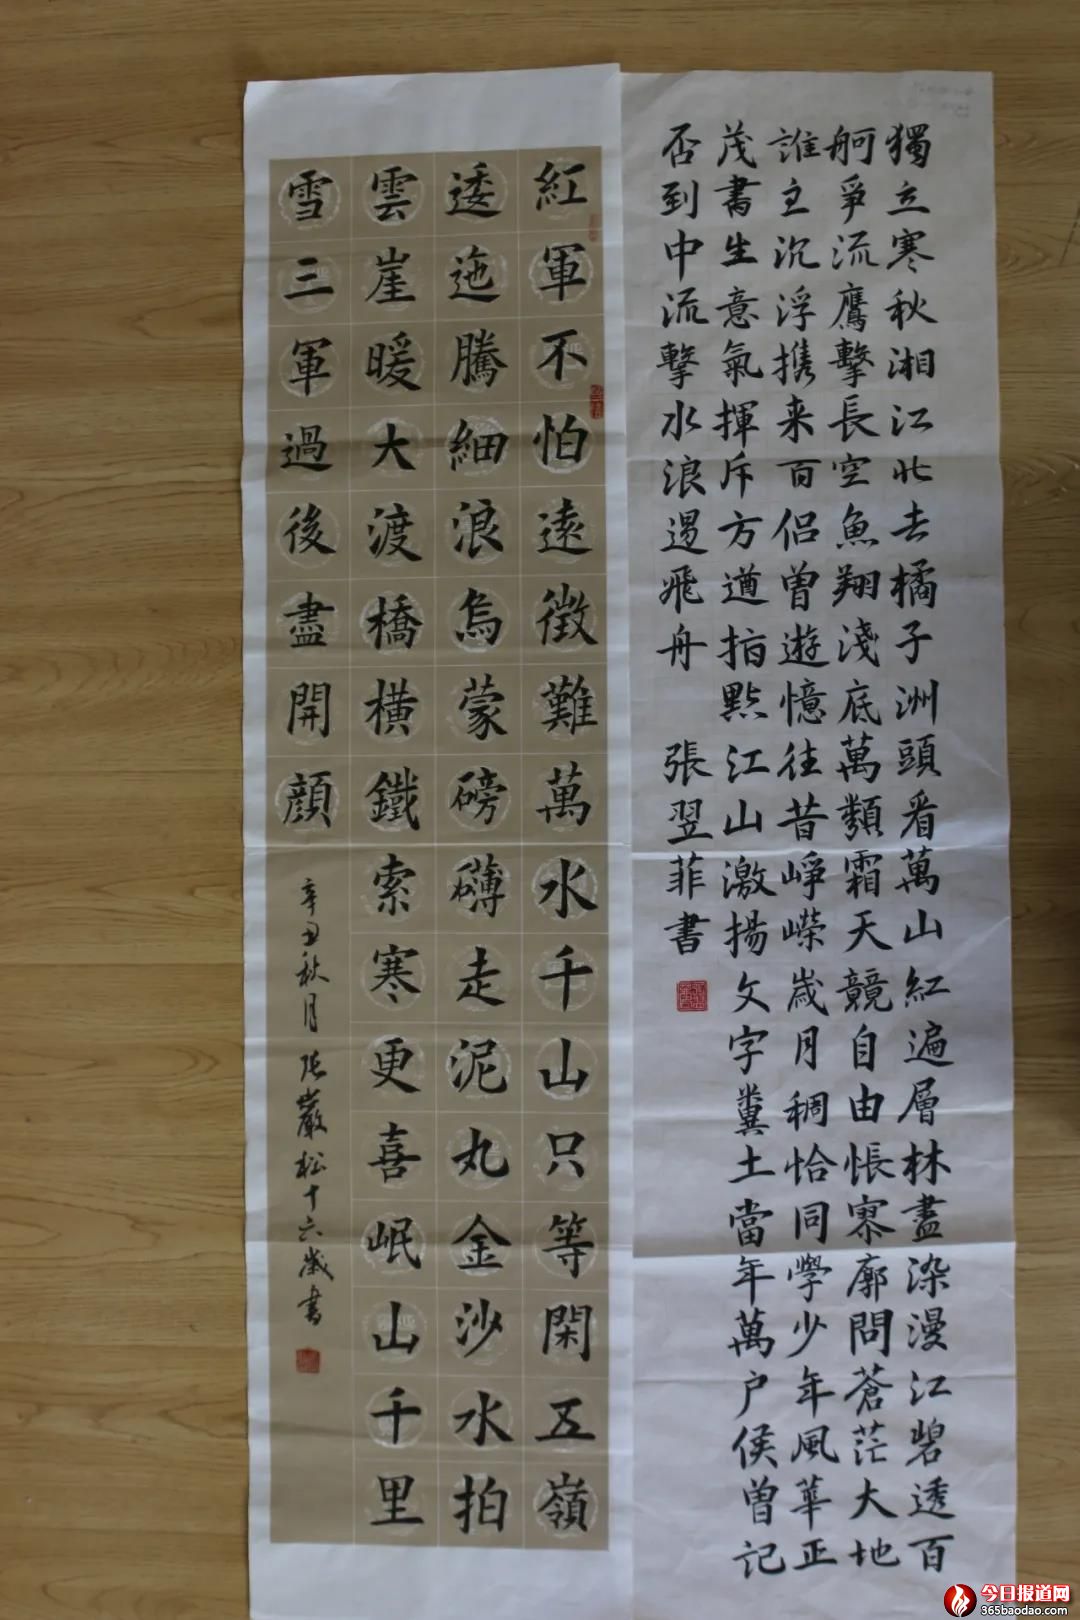 獨立寒秋湘江北去橘子洲頭看萬山紅遍層林盡染漫江碧透百
舸爭流鷹擊長空魚翔淺底萬類霜天競自由悵寥廓問蒼茫大地
誰主沉浮携来百侣曾遊憶往昔崢嶸歲月稠恰同學少年風華正
茂書生意氣揮斥方遒指點江山激揚文字糞土當年萬户侯曾記
否到中流擊水浪遏飛舟 張翌菲書
紅軍不怕遠徵難萬水千山只等閑五嶺
逶迤騰細浪烏蒙磅礴走泥丸金沙水拍
雲崖暖大渡橋橫鐵索寒更喜岷山千里
雪三軍過後盡開顔
辛丑秋月 張嚴松十六歲書
今日报道网
365baodao.com